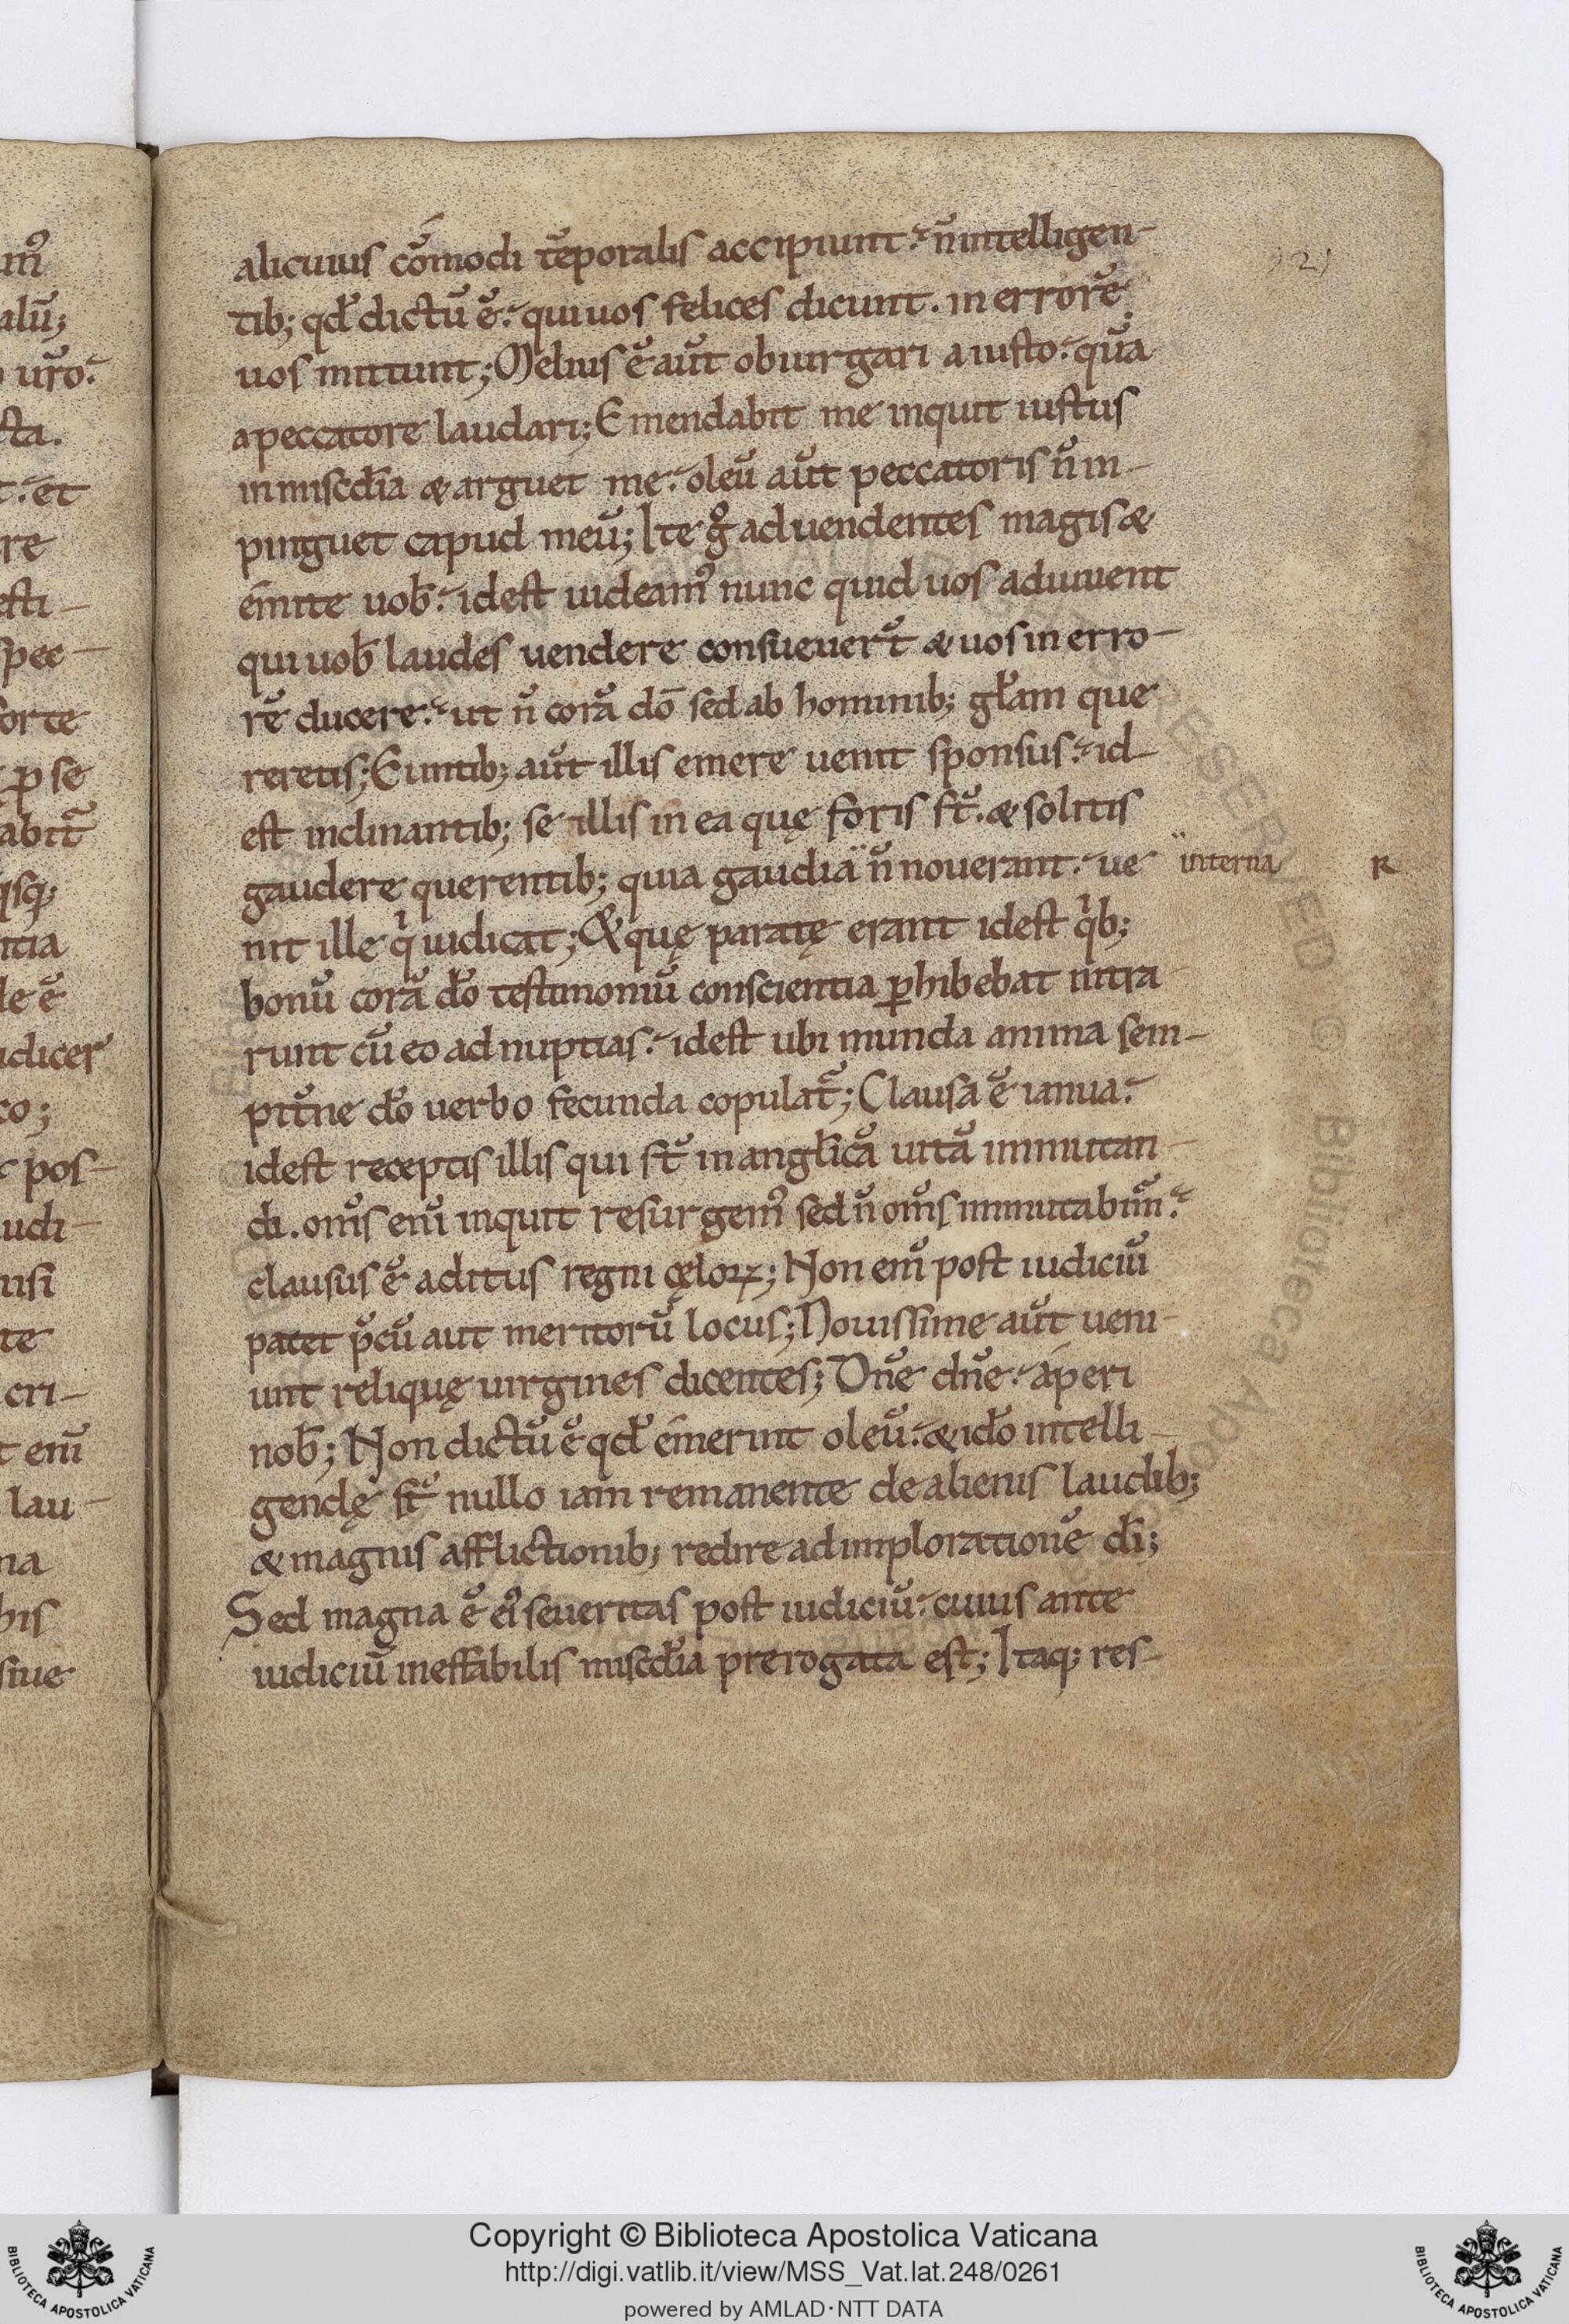 alicuius cõmodi tẽporalis accipiunt. ñ intelligen-
tib; qđ dictũ ẽ. qui uos felices dicunt. in errorẽ
uos mittunt; Melius ẽ aũt obiurgari a iusto. quã
a peccatore laudari; Emendabit me inquit iustus
in miscđia & arguet me. oleũ aũt peccatoris ñ in-
pinguet capud meũ; Ite gͦ ad uendentes magis &
emite uob̄. id est uideam᷒ nunc quid uos adiuuent
qui uob̄ laudes uendere consueuer̃t & uos in erro-
rẽ ducere. ut ñ corã dõ sed ab hominib; gł̃am que
reretis; Euntib; aũt illis emere uenit sponsus. id-
est inclinantib; se illis in ea quę foris st̃. & solitis
gaudere querentib; quia gaudia ñ nouerant. ue
interna
R
nit ille qⁱ iudicat; & quę paratę erant id est qⁱb;
bonũ corã đo testimoniũ conscientia ꝑhibebat intra
runt cũ eo ad nuptias. id est ubi munda anima sem-
pit̃ne đo uerbo fecunda copulat̃; Clausa ẽ ianua.
id est receptis illis qui st̃ in angł̃icã uitã immutan-
di. om̃s enĩ inquit resurgem᷒ sed ñ om̃s immutabim̃.
clausus ẽ aditus regni cęloꝝ; Non enĩ post iudiciũ
patet p̃cũ aut meritorũ locus; Nouissime aũt ueni-
unt reliquę uirgines dicentes; Dñe dñe. aperi
nob̄; Non dictũ ẽ qđ emerint oleũ. & iđo intelli-
gendę st̃ nullo iam remanente de alienis laudib;
& magnis afflictionib; redire ad imploratione đi;
Sed magna ẽ ei᷒ seueritas post iudiciũ. cuius ante
iudiciũ ineffabilis miscđia prerogata est; Itaq; res-
m᷒
alũ;
uro.
cta.
. et
re
esti-
spec-
orte
ꝑ se
abit̃
qsq;
ntia
le ẽ
udicer
co;
pos-
udi-
nisi
te
cri-
enĩ
lau-
na
his
siue
Copyright © Biblioteca Apostolica Vaticana
http://digi.vatlib.it/view/MSS_Vat.lat.248/0261
powered by AMLAD·NTT DATA
BIBLIOTECA APOSTOLICA VATICANA
BIBLIOTECA APOSTOLICA VATICANA